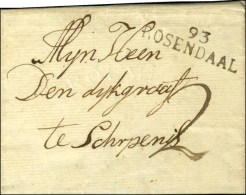 93
ROSENDAAL
Mijn Heer
Den dijkgraaf
te Scherpenis
2